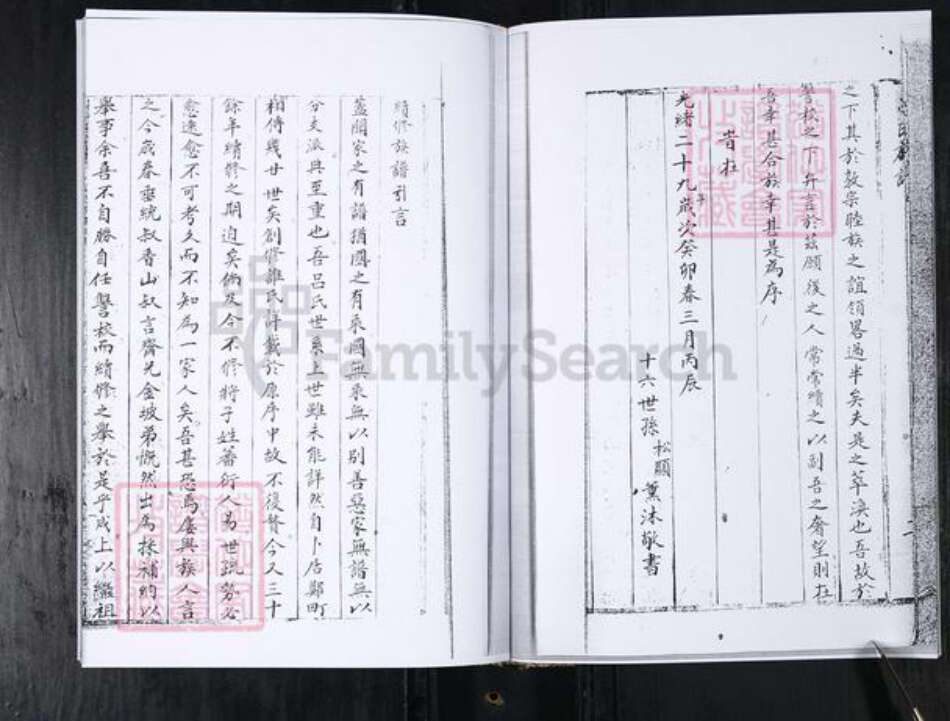 之下其於敦宗睦族之誼領畧過半矣夫是之萃渙也吾故於
讐校之下弁言於茲願後之人常常續之以副吾之奢望則在
吾幸甚合族幸甚是為序
旹在
光緒二十九年歲次癸卯春三月丙辰
十六世孫松願薰沐敬書
續修族譜引言
蓋聞家之有譜猶國之有乘國無乘無以別善惡家無譜無以
分支派典至重也吾呂氏世系上世雖未能詳然自卜居鄭町
相傳幾廿世矣創修誰氏詳載於原序中故不復贅今又三十
餘年續修之期迫矣倘及今不修將子姓蕃衍人易世疏勢必
愈遠愈不可考久而不知為一家人矣吾甚恐焉屢與族人言
之今歲春垂統叔香山叔言齊兄金坡弟慨然出為採補約以
舉事余喜不自勝自任讐校而續修之舉於是乎成上以繼祖
FamilySearch